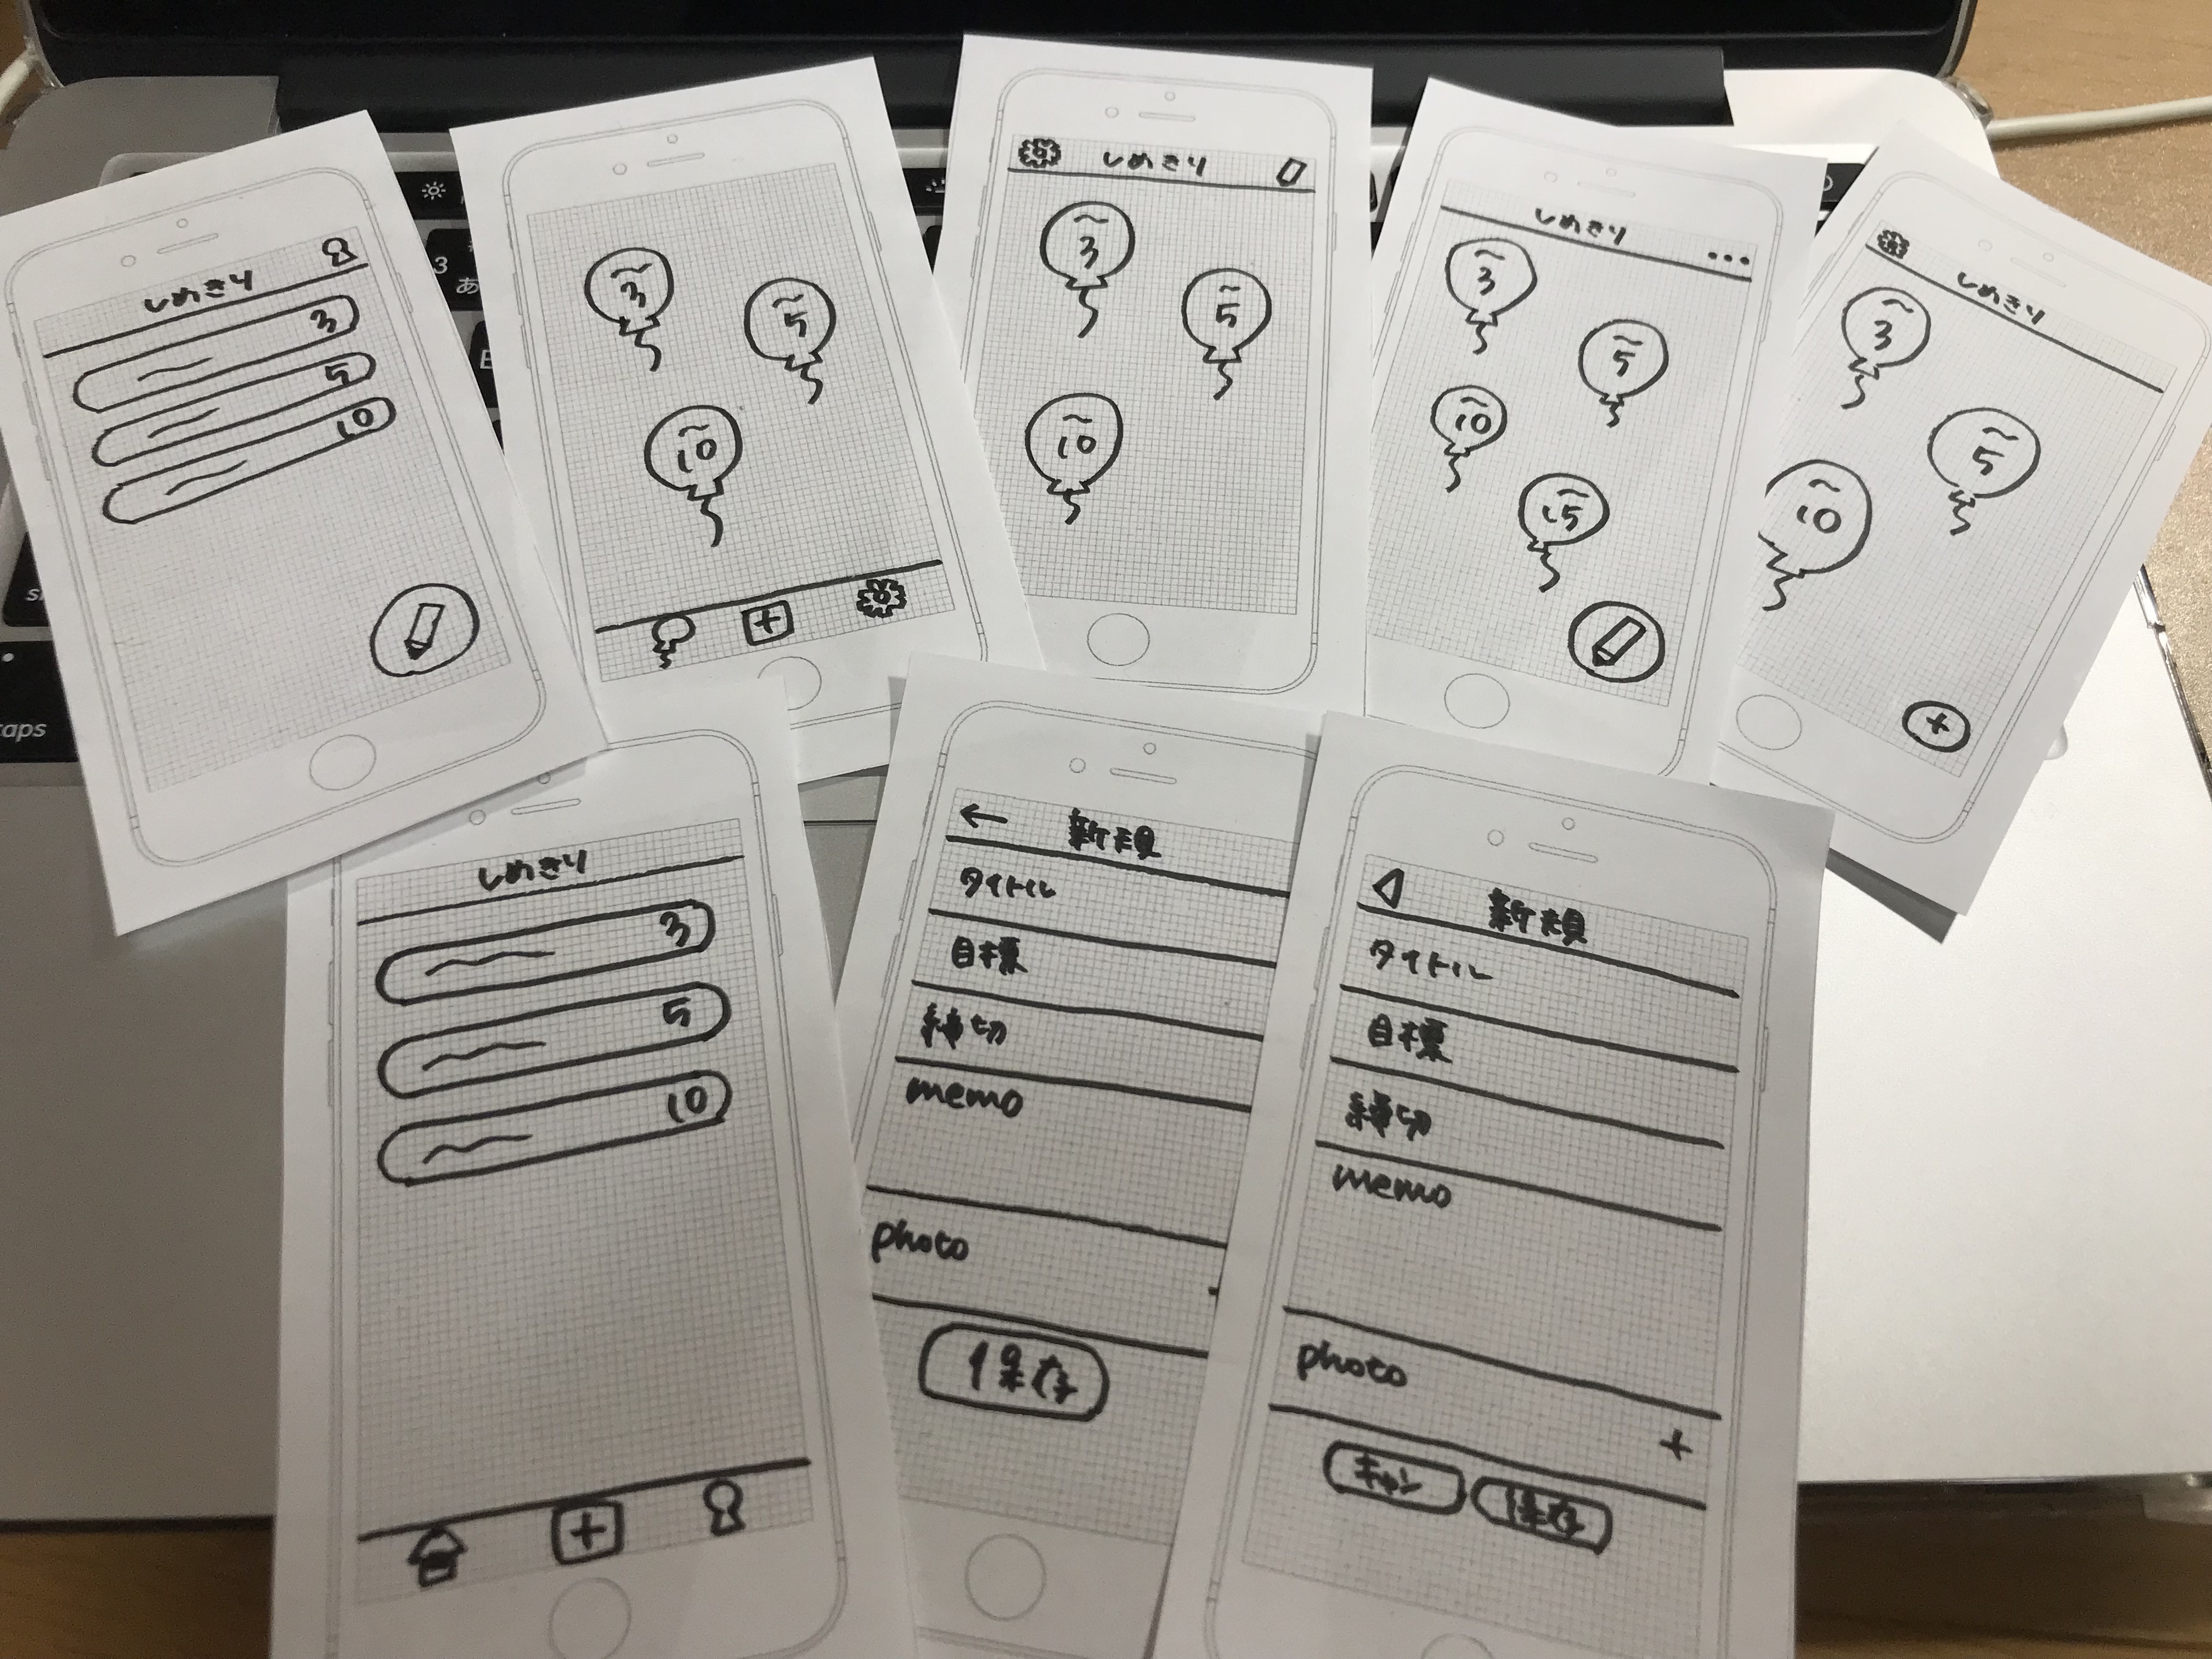 しめきり
3
5
10
3
5
10
しめきり
3
5
10
しめきり
3
5
10
15
しめきり
3
5
10
+
しめきり
3
5
10
+
← 新規
タイトル
目標
締切
memo
photo
保存
新規
タイトル
目標
締切
memo
photo
+
キャン 保存
3
あ
caps